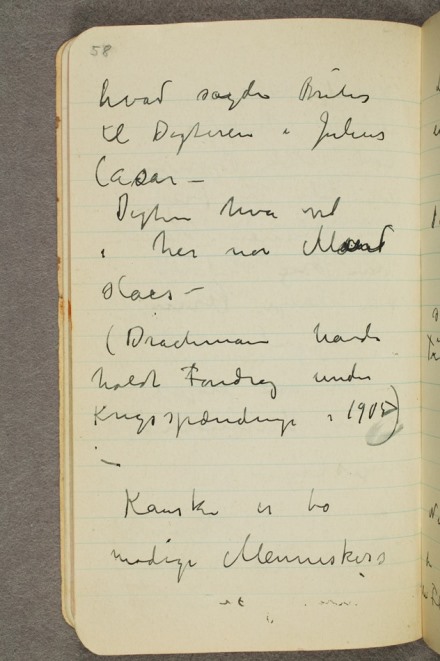 58
hvad sagde Brutus
til Digteren i Julius
Cæsar –
Digter hva vil
i her naar Mænd
slaaes –
(Drachmann havde
holdt Foredrag under
Krigsspændinge i 1905)
–
Kanske er to
modige Menneskers